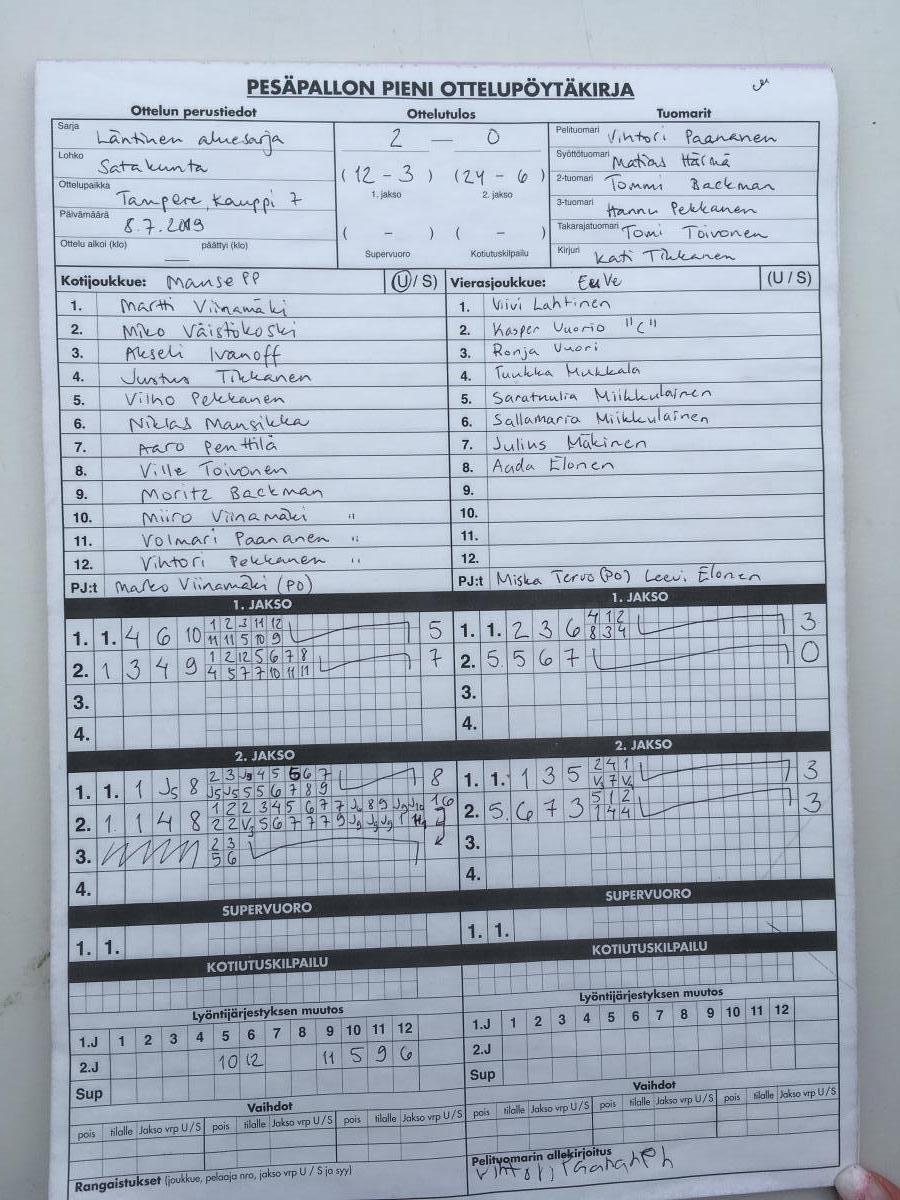 PESÄPALLON PIENI OTTELUPÖYTÄKIRJA
Ottelun perustiedot Ottelutulos Tuomarit
Sarja Läntinen aluesarja
Lohko Satakunta
Ottelupaikka Tampere, Kauppi 7
Päivämäärä 8.7.2019
Ottelu alkoi (klo) päättyi (klo)
2 — 0
(12 - 3) (24 - 6)
1. jakso 2. jakso
( - ) ( - )
Supervuoro Kotiutuskilpailu
Pelituomari Vihtori Paananen
Syöttötuomari Matias Härmä
2-tuomari Tommi Backman
3-tuomari Hannu Pekkanen
Takarajatuomari Tomi Toivonen
Kirjuri Kati Tikkanen
Kotijoukkue: Manse PP (U/S)
1. Martti Viinamäki
2. Miko Väistökoski
3. Akseli Ivanoff
4. Justus Tikkanen
5. Vilho Pekkanen
6. Niklas Mansikka
7. Aaro Penttilä
8. Ville Toivonen
9. Moritz Backman
10. Miiro Viinamäki "
11. Volmari Paananen "
12. Vihtori Pekkanen "
PJ:t Marko Viinamäki (PO)
Vierasjoukkue: EuVe (U/S)
1. Viivi Lahtinen
2. Kasper Vuorio "C"
3. Ronja Vuori
4. Tuukka Mukkala
5. Saratuulia Miikkulainen
6. Sallamaria Miikkulainen
7. Julius Mäkinen
8. Aada Elonen
9.
10.
11.
12.
PJ:t Miska Tervo (PO) Leevi Elonen
1. JAKSO
1. 1. 4 6 10 1 2 3 11 12 5
11 11 5 10 9
2. 1 3 4 9 1 2 12 5 6 7 8 7
4 5 7 7 10 11 11
3.
4.
1. JAKSO
1. 1. 2 3 6 4 1 2 3
8 3 4
2. 5. 5 6 7 0
3.
4.
2. JAKSO
1. 1. 1 J5 8 2 3 J9 4 5 6 6 7 8
J5 J5 5 5 6 7 8 9
2. 1. 1 4 8 1 2 2 3 4 5 6 7 7 8 9 16
2 2 V3 5 6 7 7 7 9
3. 2 3
5 6
4.
2. JAKSO
1. 1. 1 3 5 2 4 1 3
7
2. 5. 6 7 3 5 1 2 3
1 4 4
3.
4.
SUPERVUORO
1. 1.
SUPERVUORO
1. 1.
KOTIUTUSKILPAILU
KOTIUTUSKILPAILU
Lyöntijärjestyksen muutos
1.J 1 2 3 4 5 6 7 8 9 10 11 12
2.J 10 12 11 5 9 6
Sup
Lyöntijärjestyksen muutos
1.J 1 2 3 4 5 6 7 8 9 10 11 12
2.J
Sup
Vaihdot
pois tilalle Jakso vrp U/S pois tilalle Jakso vrp U/S pois tilalle Jakso vrp U/S
Vaihdot
pois tilalle Jakso vrp U/S pois tilalle Jakso vrp U/S pois tilalle Jakso vrp U/S
Rangaistukset (joukkue, pelaaja nro, jakso vrp U / S ja syy)
Pelituomarin allekirjoitus
Vihtori Paananen